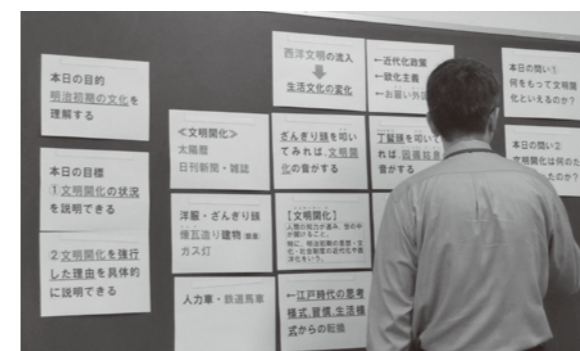 本日の目的
明治初期の文化を
理解する
本日の目標
①文明開化の状況
を説明できる
②文明開化を強行
した理由を具体的
に説明できる
≪文明開化≫
太陽暦
日刊新聞・雑誌
洋服・ざんぎり頭
煉瓦造り建物
ガス灯
人力車・鉄道馬車
西洋文明の流入
生活文化の変化
ざんぎり頭を叩い
てみれば、文明開
化の音がする
【文明開化】
人間の知力が進み、世の中
が開けること。
特に、明治初期の思想・文
化・社会制度の近代化や西
洋化をいう。
←江戸時代の思考
様式、習慣、生活様
式からの転換
←近代化政策
←欧化主義
←お雇い外
丁髷頭を叩いて
れば、因循姑息
音がする
本日の問い①
何をもって文明開
化といえるのか?
本日の問い②
文明開化は何のた
たのか?